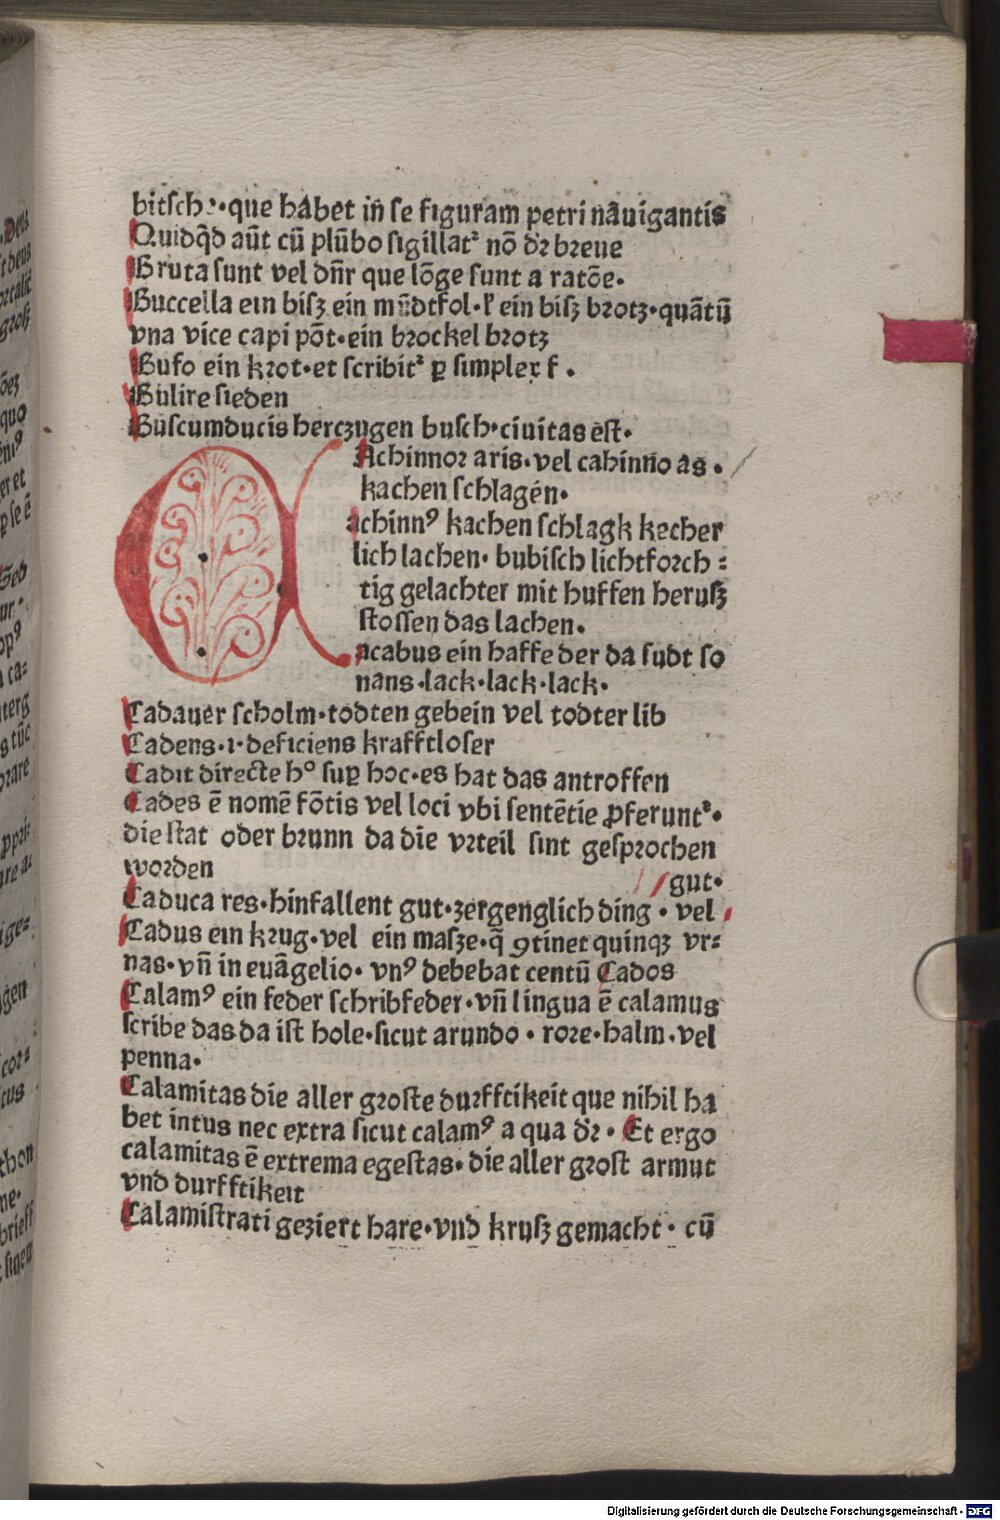 bitſch ꝛ·que habet in̄ ſe figuram petri nāuigantis
Quidq̄d aūt cū plūbo ſigillatᷣ nō dꝛ breue
Bruta ſunt vel dn̄r que lōge ſunt a ratōe·
Buccella ein biſz ein mūdtfol·ł ein biſz brotz·quātū
vna vice capi pōt·ein brockel brotz
Bufo ein krot·et ſcribitᷣ ꝑ ſimplex f ·
Bulire ſieden
Buſcumducis herczugen buſch·ciuitas eſt·
Achinnoꝛ aris·vel cahinno as ·
kachen ſchlagen·
achinnꝰ kachen ſchlagk kecher
lich lachen· bubiſch lichtfoꝛch :
tig gelachter mit huffen heruſz
ſtoſſen das lachen·
acabus ein haffe der da ſudt ſo
nans·lack·lack·lack·
Cadauer ſcholm·todten gebein vel todter lib
Cadens·i·deficiens krafftloſer
Cadit directe h° ſuꝑ hoc·es hat das antroffen
Cades ē nomē fōtis vel loci vbi ſentētie ꝓferuntᷣ·
die ſtat oder bꝛunn da die vꝛteil ſint geſpꝛochen
woꝛden
gut·
Caduca res·hinfallent gut·zergenglich ding · vel
Cadus ein kꝛug·vel ein maſze·q̄ ꝯtinet quinqꝫ vr⸗
nas·vn̄ in euāgelio· vnꝰ debebat centū Cados
Calamꝰ ein feder ſchribfeder·vn̄ lingua ē calamus
ſcribe das da iſt hole·ſicut arundo · roꝛe·halm·vel
penna·
Calamitas die aller gꝛoſte durfftikeit que nihil ha
bet intus nec extra ſicut calamꝰ a qua dꝛ · Et ergo
calamitas ē extrema egeſtas·die aller gꝛoſt armut
vnd durfftikeit
Calamiſtrati geziert hare·vnd kruſz gemacht · cū
Digitalisierung gefördert durch die Deutsche Forschungsgemeinschaft - DFG